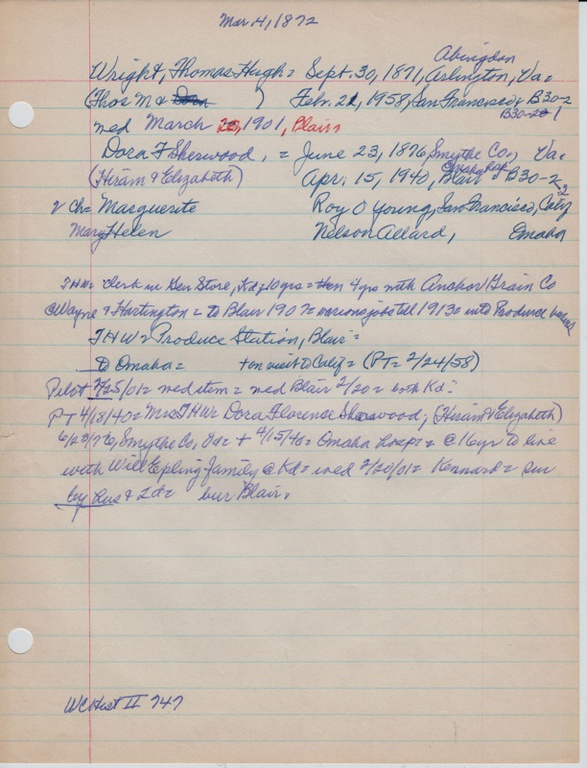 Mar 14, 1872
Abingdon
Wright, Thomas Hugh = Sept. 30, 1871, Arlington, Va =
(Thos M & Dora ) Febr. 21, 1958, San Francisco & B30-2
B30-20 1
wed March 20, 1901, Blair
Dora F Sherwood, = June 23, 1876, Smythe Co, Va.
Omaha
(Hiram & Elizabeth) Apr. 15, 1940, Blair = B30-2
2
2 ch = Marguerite Roy O Young, San Francisco, Calif
Mary Helen Nelson Allard, Omaha
THW = clerk in Gen Store, Kd = 10 yrs = then 4 yrs with Anchor Grain Co
@ Wayne & Hartington = to Blair 1907 = various jobs til 1913 = into Produce
THW = Produce Station, Blair =
to Omaha = + on visit to Calif = (PT = 2/24/58)
Pilot 2/25/01 = wed item = wed Blair 2/20 = both Kd =
PT 4/18/40 = Mrs THW = Dora Florence Sherwood; (Hiram & Elizabeth)
6/23/76, Smythe Co, Va = + 4/15/40 = Omaha hosp = @ 16 yr to live
with Will Epling family @ Kd = wed 2/20/01 = Kennard = sur
by hus & 2 d = bur Blair.
WC Hist II 747